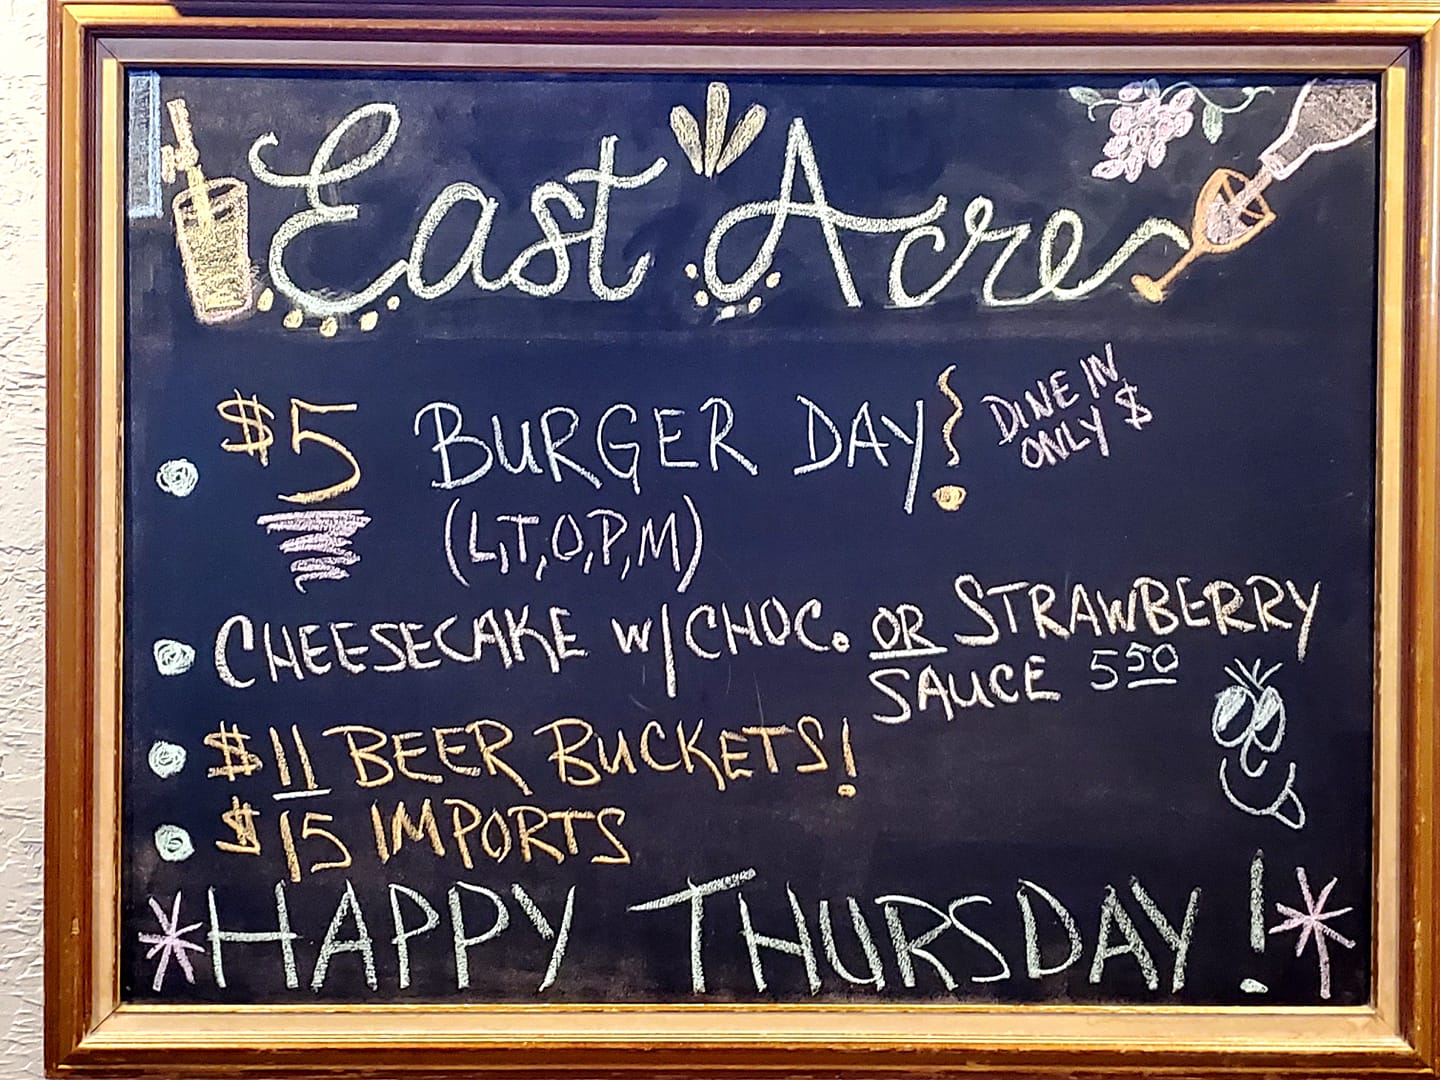 East Acres
$5 BURGER DAY! DINE IN
ONLY $
(L,T,O,P,M)
CHEESECAKE W/CHOC. OR STRAWBERRY
SAUCE 5 50
$11 BEER BUCKETS!
$15 IMPORTS
*HAPPY THURSDAY!*